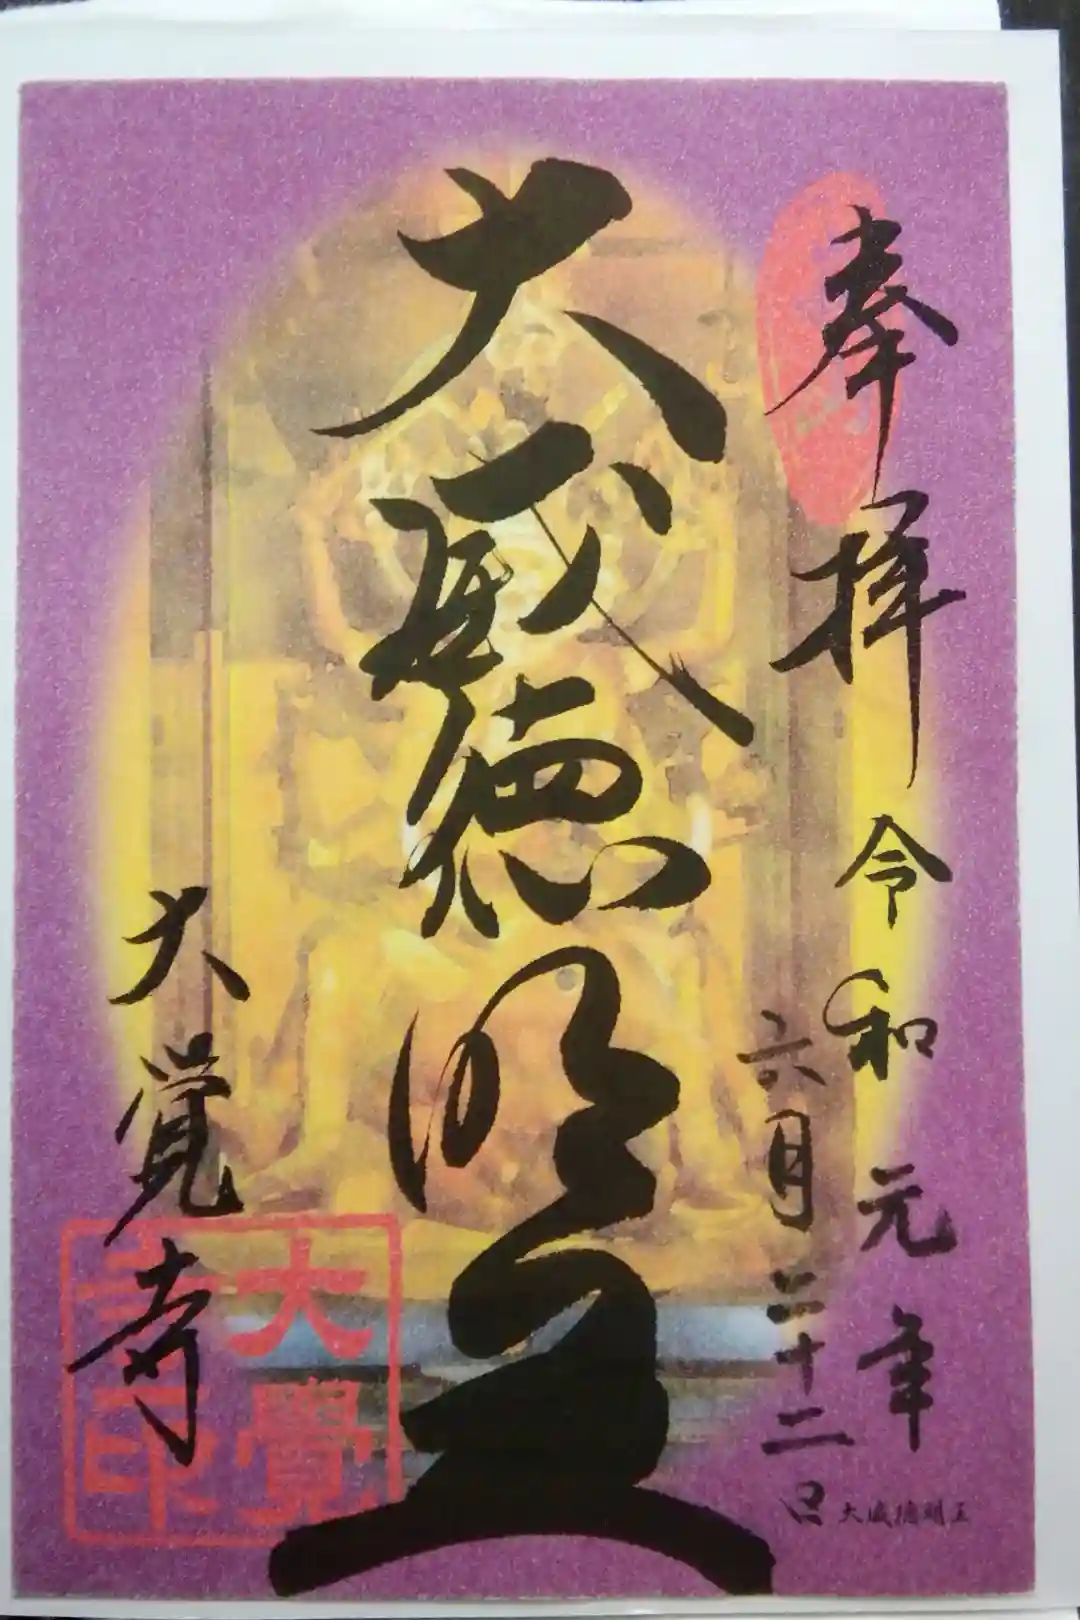 奉拝
令和元年
六月二十二日
大威徳明王
大覚寺
大覺
寺印
大威徳明王